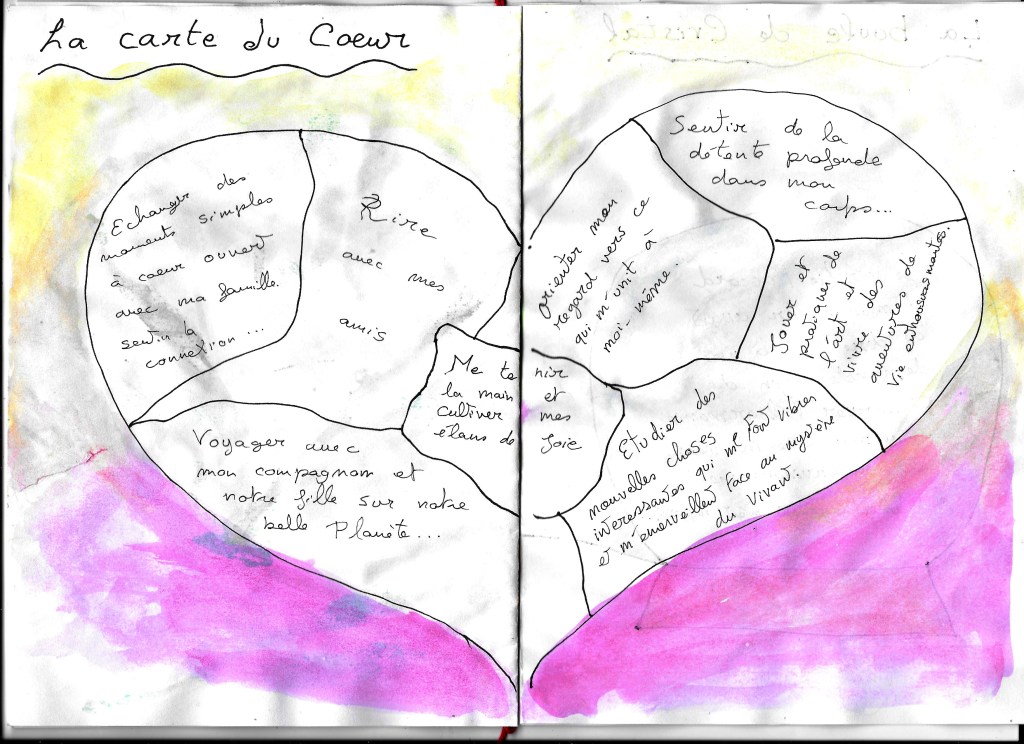 La carte du Coeur
Echanger des
moments simples
à coeur ouvert
avec ma famille.
sentir la
connexion ...
Rire
avec mes
amis
Orienter mon
regard vers ce
qui m'unit à
moi-même.
Sentir de la
détente profonde
dans mon
corps...
Jouer et
pratiquer de
l'art et
vivre des
aventures de
vie enthousiasmantes.
Me tenir
la main et
cultiver mes
élans de Joie
Voyager avec
mon compagnon et
notre fille sur notre
belle Planète...
Etudier des
nouvelles choses
interessantes qui me font vibrer
et m'émerveillent face au mystère
du Vivant...